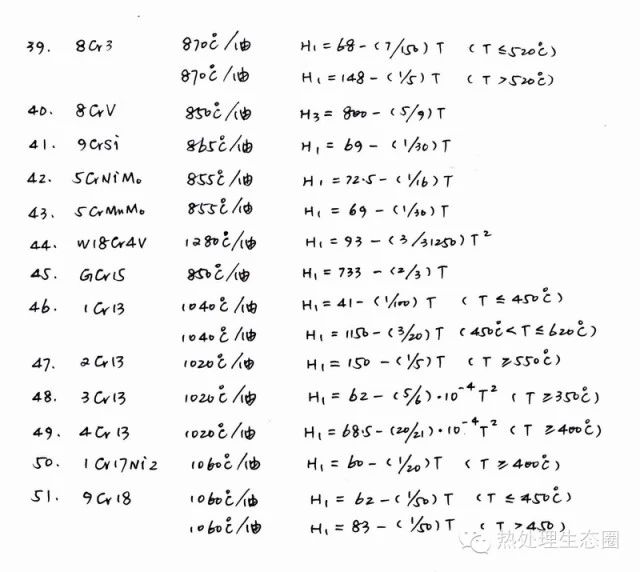 39. 8Cr3 870℃/油 H₁=68-(7/150)T (T≤520℃)
870℃/油 H₁=148-(1/5)T (T>520℃)
40. 8CrV 850℃/油 H₃=800-(5/9)T
41. 9CrSi 865℃/油 H₁=69-(1/30)T
42. 5CrNiMo 855℃/油 H₁=72.5-(1/16)T
43. 5CrMnMo 855℃/油 H₁=69-(1/30)T
44. W18Cr4V 1280℃/油 H₁=93-(3/31250)T²
45. GCr15 850℃/油 H₁=733-(2/3)T
46. 1Cr13 1040℃/油 H₁=41-(1/100)T (T≤450℃)
1040℃/油 H₁=1150-(3/20)T (450℃<T≤620℃)
47. 2Cr13 1020℃/油 H₁=150-(1/5)T (T≥550℃)
48. 3Cr13 1020℃/油 H₁=62-(5/6)·10⁻⁴T² (T≥350℃)
49. 4Cr13 1020℃/油 H₁=68.5-(20/21)·10⁻⁴T² (T≥400℃)
50. 1Cr17Ni2 1060℃/油 H₁=60-(1/20)T (T≥400℃)
51. 9Cr18 1060℃/油 H₁=62-(1/50)T (T≤450℃)
1060℃/油 H₁=83-(1/50)T (T>450)
热处理生态圈